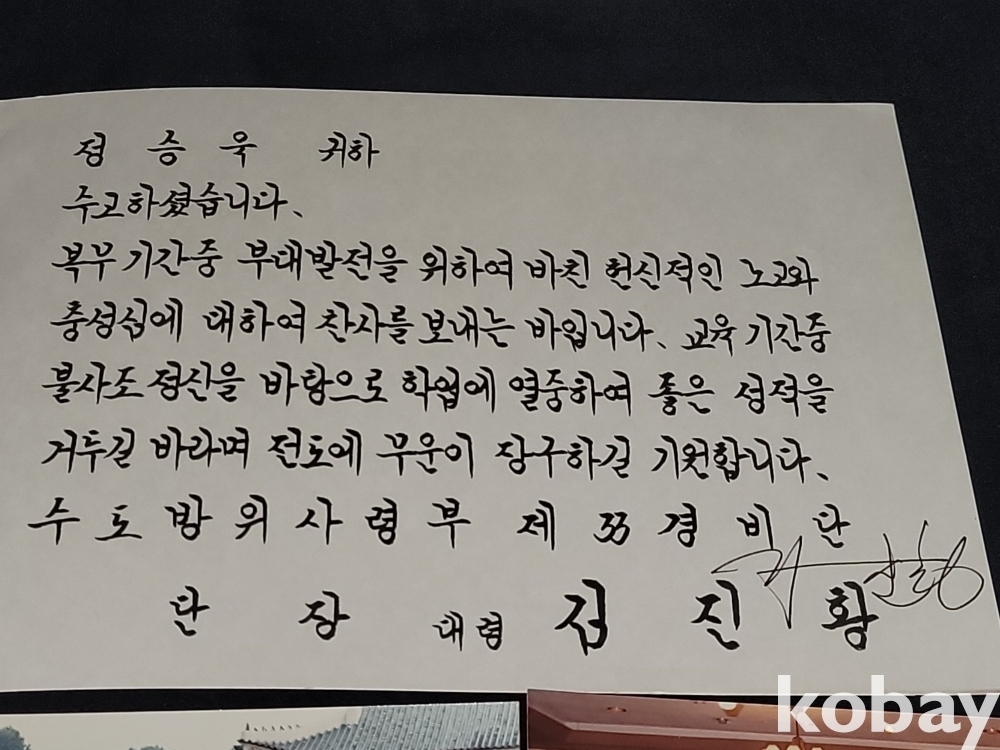 정 승 욱 귀하
수고하셨습니다.
복무 기간중 부대발전을 위하여 바친 헌신적인 노고와
충성심에 대하여 찬사를 보내는 바입니다. 교육 기간중
불사조 정신을 바탕으로 학업에 열중하여 좋은 성적을
거두길 바라며 전도에 무운이 장구하길 기원합니다.
수도방위사령부 제 33 경비단
단 장 대령 김 진 황
kobay